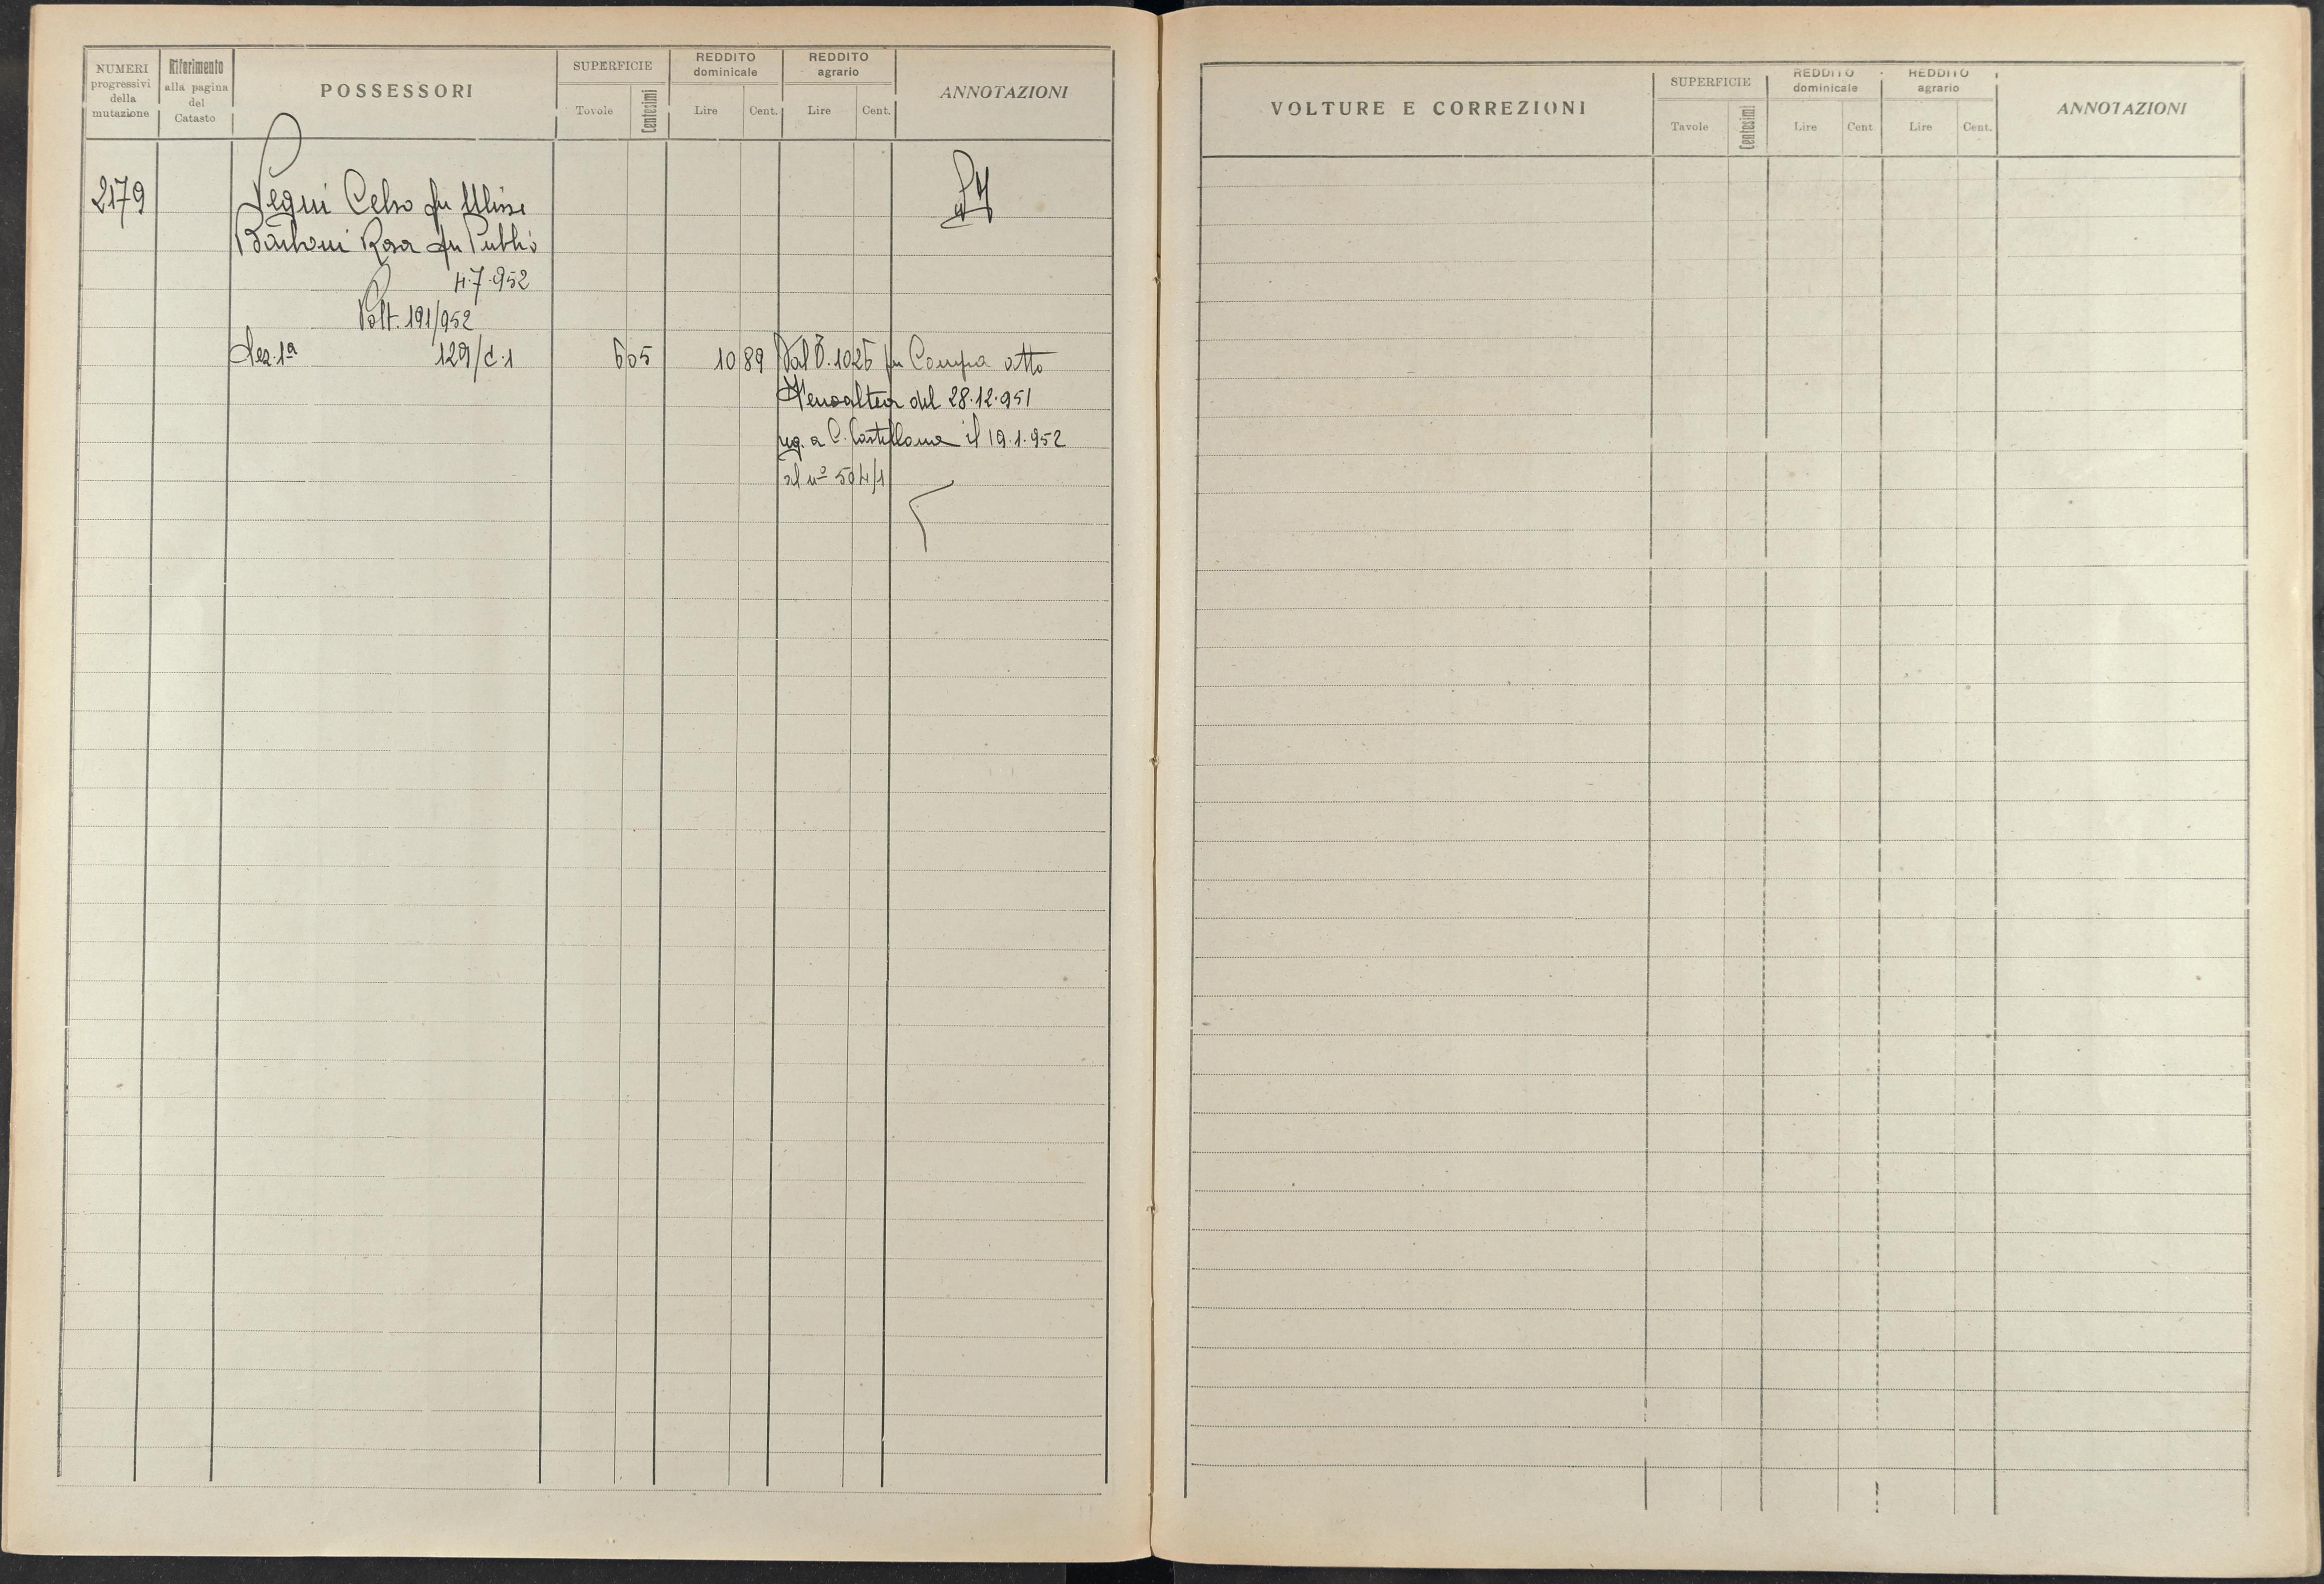 NUMERI progressivi della mutazione
Riferimento alla pagina del Catasto
POSSESSORI
SUPERFICIE
Tovole
Centesimi
REDDITO dominicale
Lire
Cent.
REDDITO agrario
Lire
Cent.
ANNOTAZIONI
2179
Celso fu Ulisse
Rosa fu Publio
4.7.952
Volt. 191/952
Sez. 1ª 129/c.1 605 10 89 Dal fu Compra atto
del 28.12.951
reg. a C. Castellana il 19.1.952
al nº 504/1
VOLTURE E CORREZIONI
SUPERFICIE
Tavole
Centesimi
REDDITO dominicale
Lire
Cent
REDDITO agrario
Lire
Cent.
ANNOTAZIONI